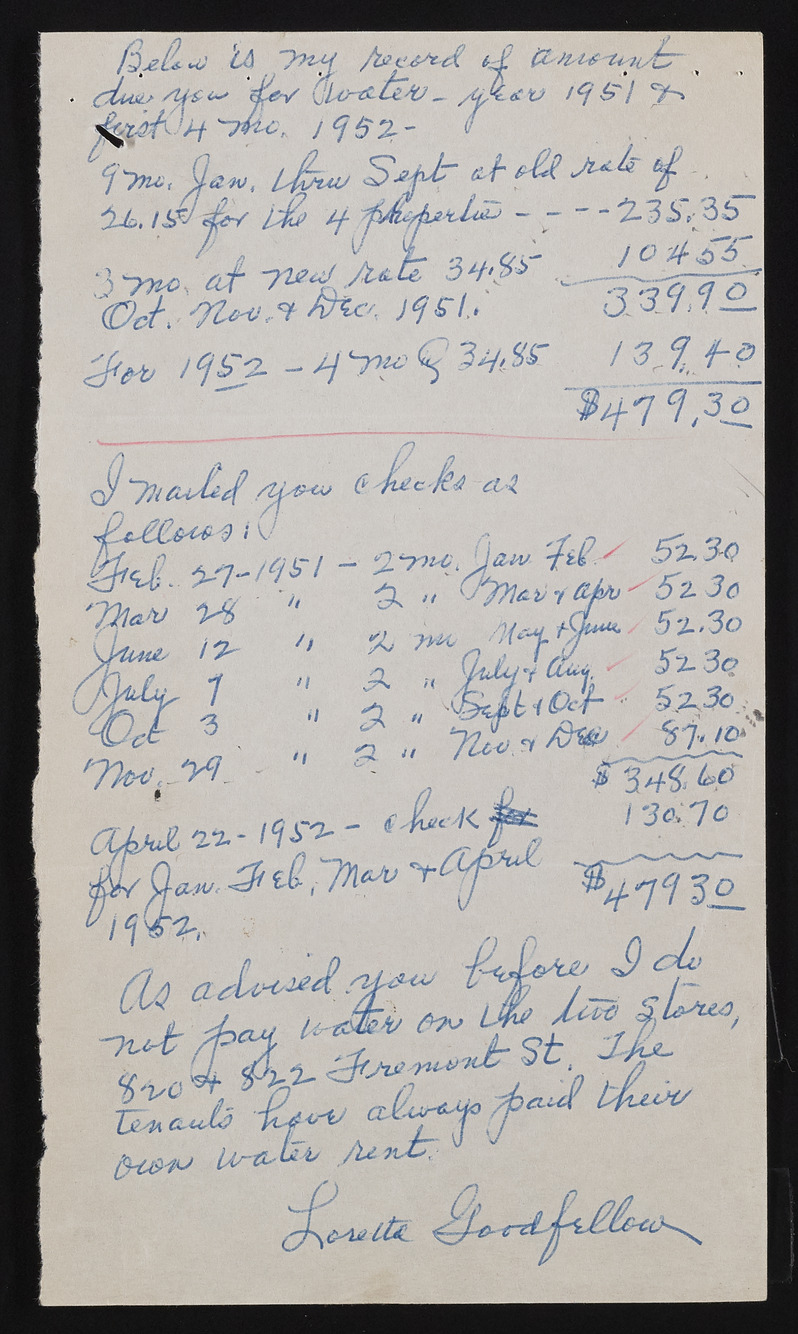 Below is my record of amount
due you for water - year 1951 &
first 4 mo. 1952 -
9 mo. Jan. thru Sept at old rate of
26.15 for the 4 propertie - - - - 235.35
3 mo. at new rate 34.85 104.55
Oct. Nov. & Dec. 1951. 339.90
For 1952 - 4 mo @ 34.85 139.40
$479.30
I mailed you checks as
follows:
Feb. 27 - 1951 - 2 mo. Jan Feb 52.30
Mar 28 " 2 " Mar & Apr 52 30
June 12 " 2 mo May & June 52.30
July 7 " 2 " July & Aug. 52 30
Oct 3 " 2 " Sept & Oct 52 30
Nov. 29 " 2 " Nov. & Dec 87.10
$348.60
April 22 - 1952 - check for 130.70
for Jan. Feb, Mar & April $479 30
1952.
As advised you before I do
not pay water on the two stores,
820 & 822 Fremont St. The
tenants have always paid their
own water rent.
Loretta Goodfellow